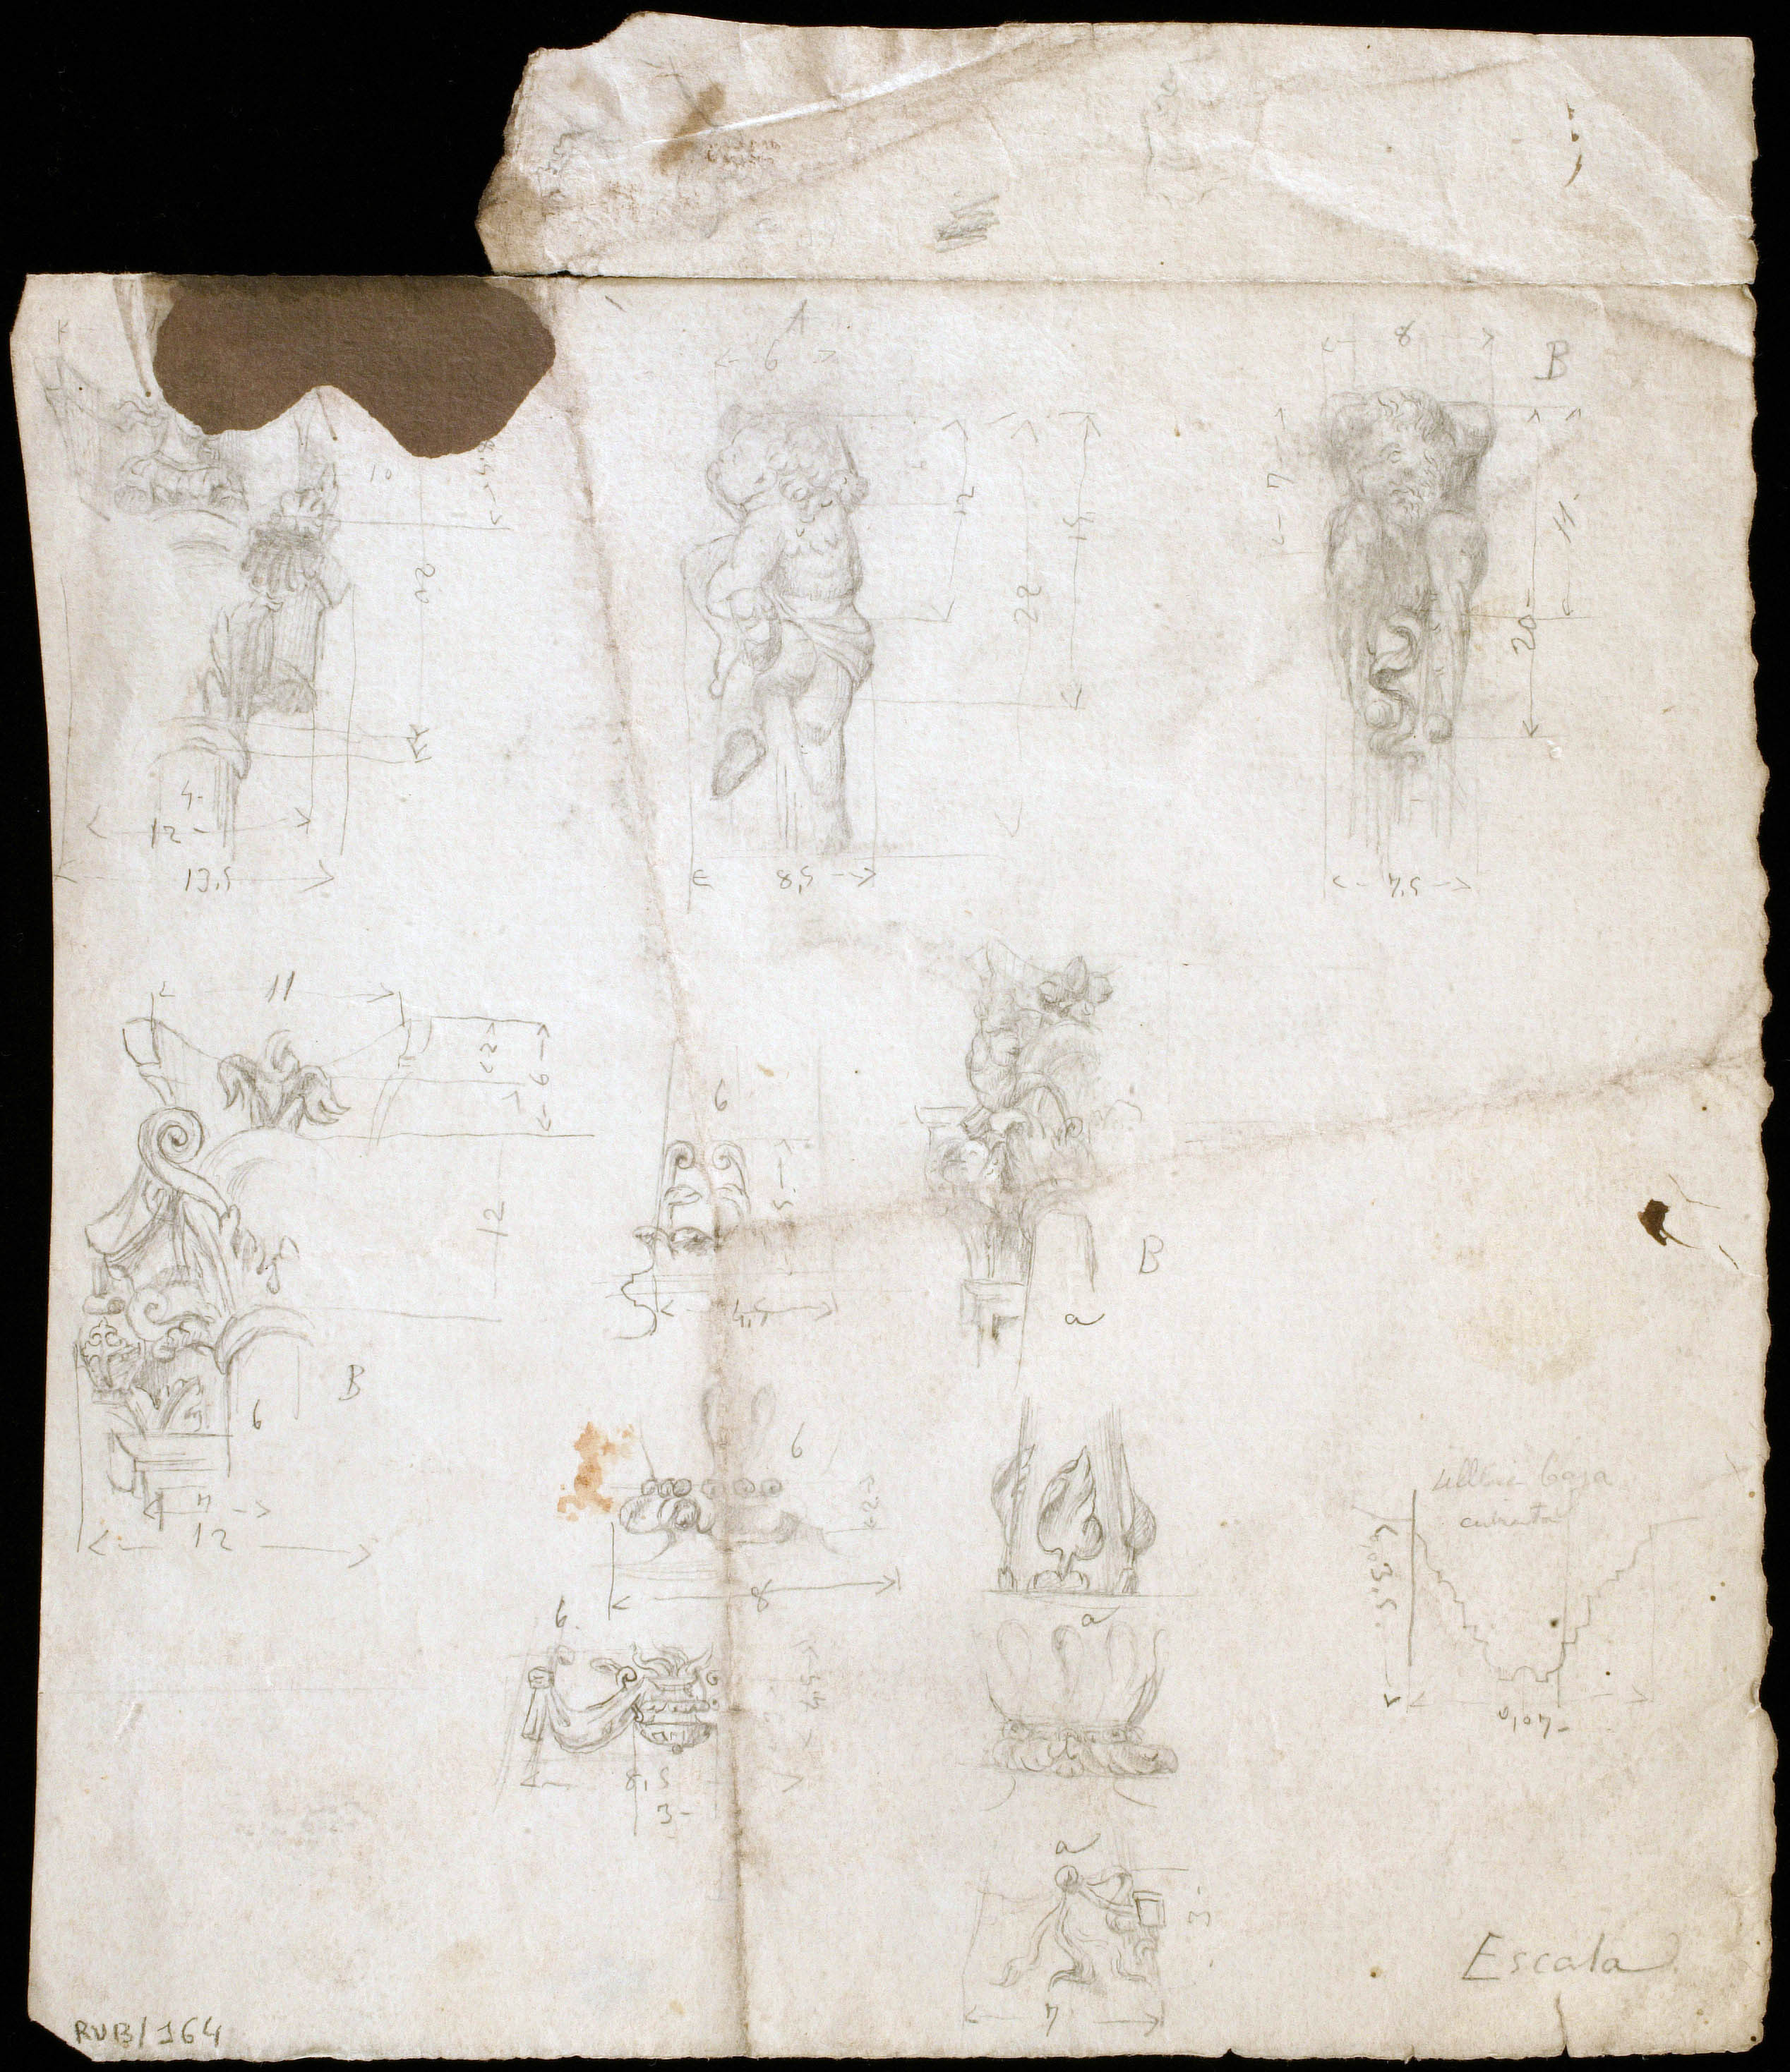 A
6
8
B
10
8,5
12
22
15
7
11-
20-
20
4-
12-
13,5
8,5
7,5
11
6
12
6
5
4,5
B
a
B
6
7
12
6
2
8
a
baja
cubierta
0,35
0,07-
6.
4,5
8,5
3-
a
3
7
Escala
RUB/164